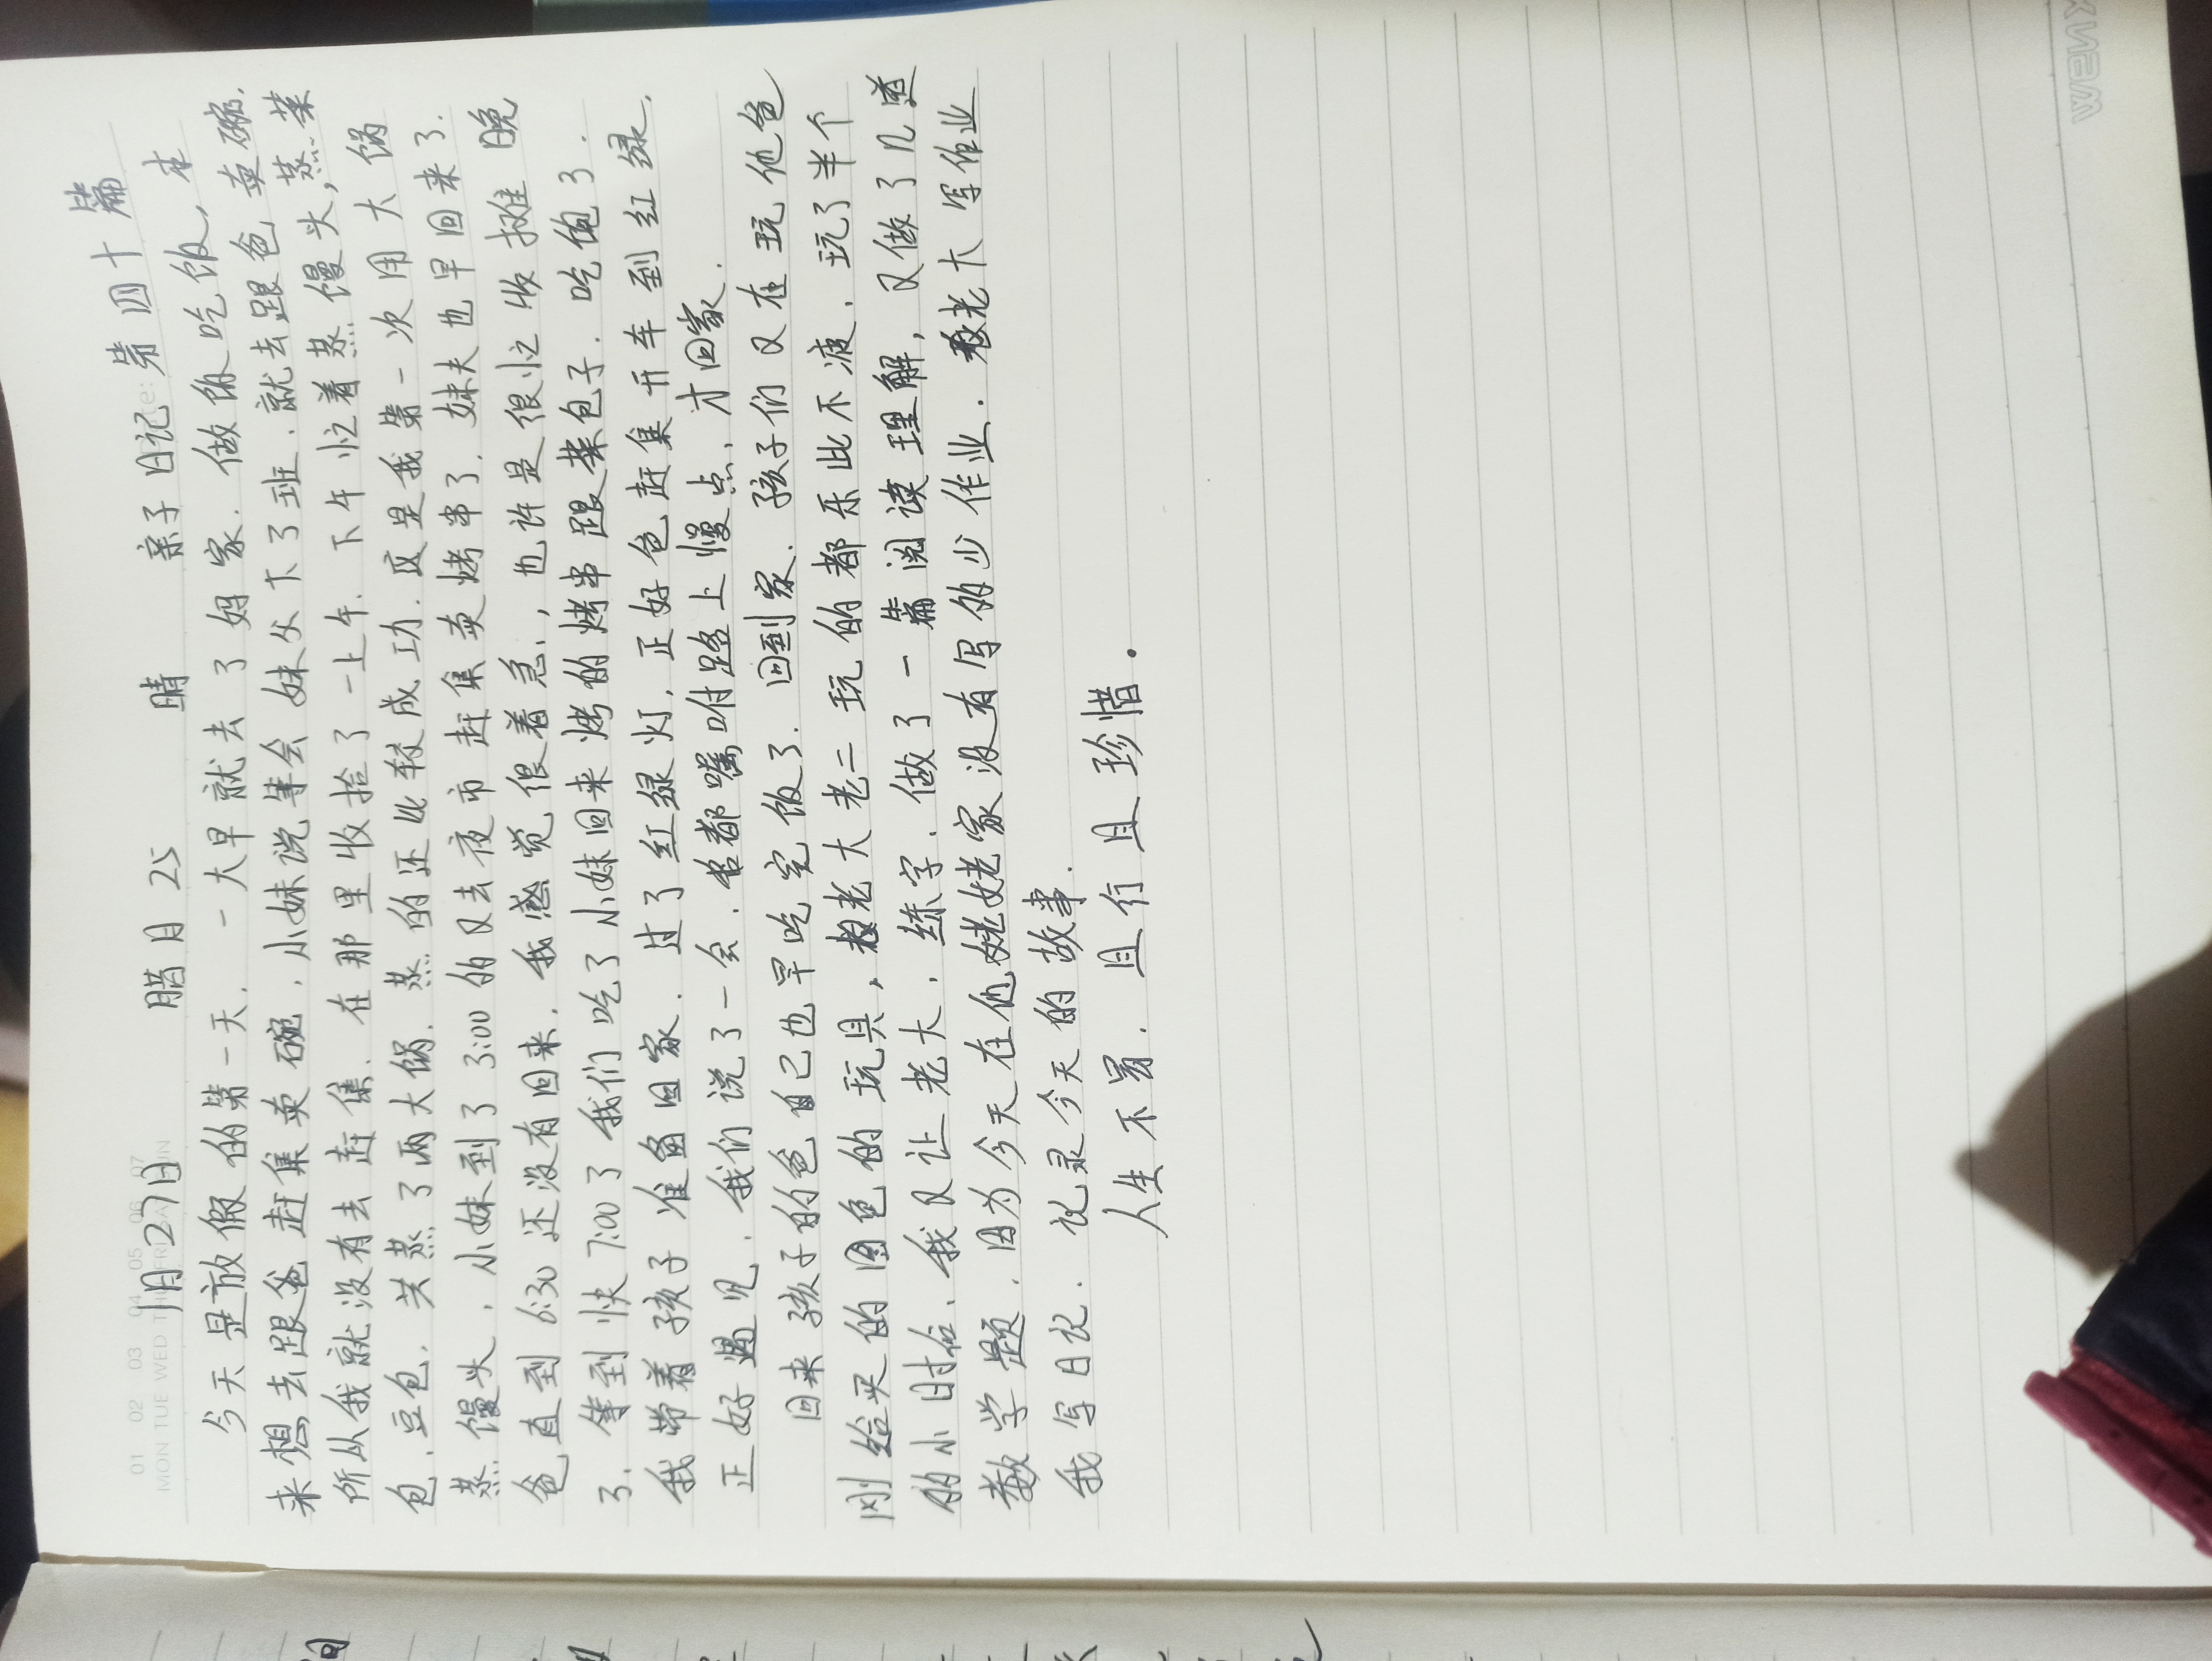 01 02 03 04 05 06 07
MON TUE WED THU FRI SAT SUN
1月27日 腊月25 晴 亲子日记 第四十篇
今天是放假的第一天.一大早就去了妈家.做饭吃饭,本
来想去跟爸赶集卖碗.小妹说等会妹父下了班.就去跟爸卖碗.
所从我就没有去赶集.在那里收拾了一上午.下午忙着蒸馒头,蒸菜
包.豆包.共蒸了两大锅.蒸的还比较成功.这是我第一次用大锅
蒸馒头.小妹到了3:00的又去夜市赶集卖烤串了.妹夫也早回来了.
爸直到6:30还没有回来.我感觉很着急,也许是很忙收摊晚
了.等到快7:00了我们吃了小妹回来烤的烤串跟菜包子.吃饱了.
我带着孩子准备回家.过了红绿灯.正好爸赶集开车到红绿.
正好遇见.我们说了一会.爸都嘱咐路上慢点.才回家.
回来孩子的爸自己也早吃完饭了.回到家.孩子们又在玩他爸
刚给买的图色的玩具,教老大老二玩的都乐此不疲.玩了半个
的小时后.我又让老大.练字.做了一篇阅读理解,又做了几道
数学题.因为今天在他姥姥家没有写多少作业.教老大写作业
我写日记.记录今天的故事.
人生不易.且行且珍惜.